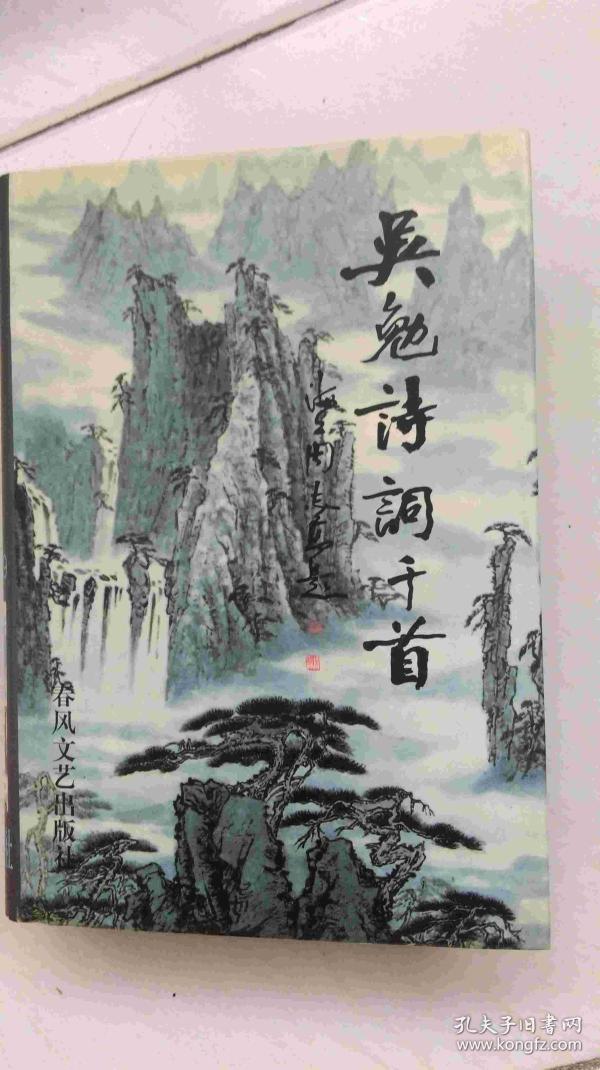 吳勉詩詞千首
春风文艺出版社
社
孔夫子旧书网
www.kongfz.com